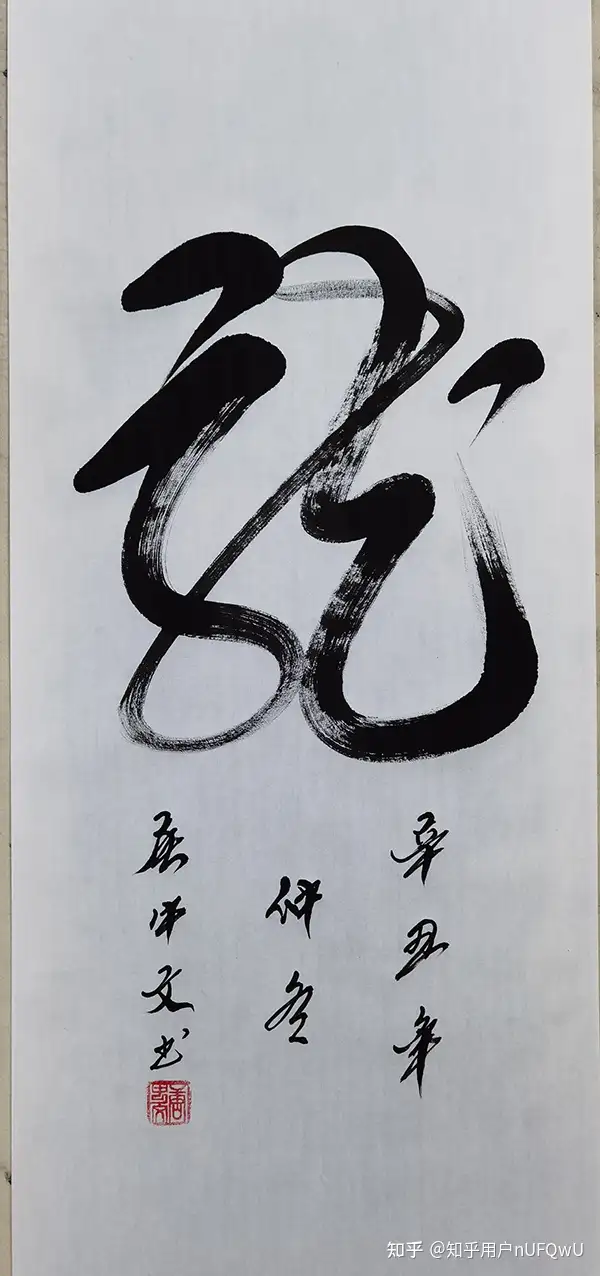 龍
辛丑年
仲冬
唐文书
知乎 @知乎用户nUFQwU